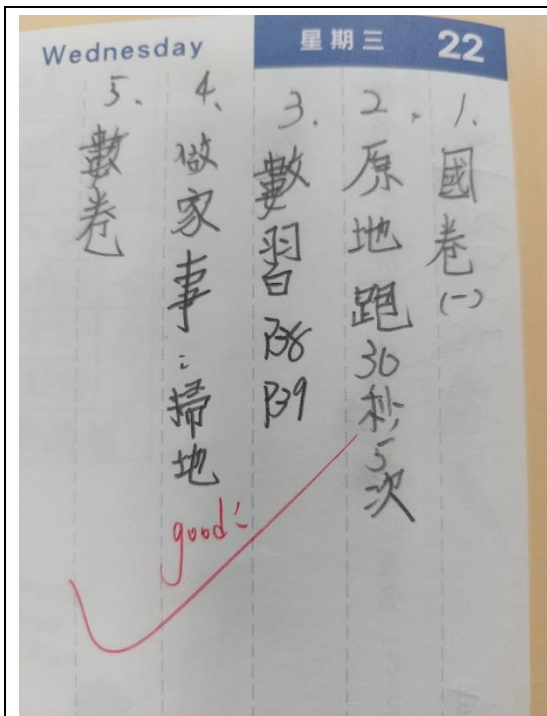 Wednesday 星期三 22
1、國卷(一)
2、原地跑30秒5次
3、數習P38 P39
4、做家事：掃地
5、數卷
good!